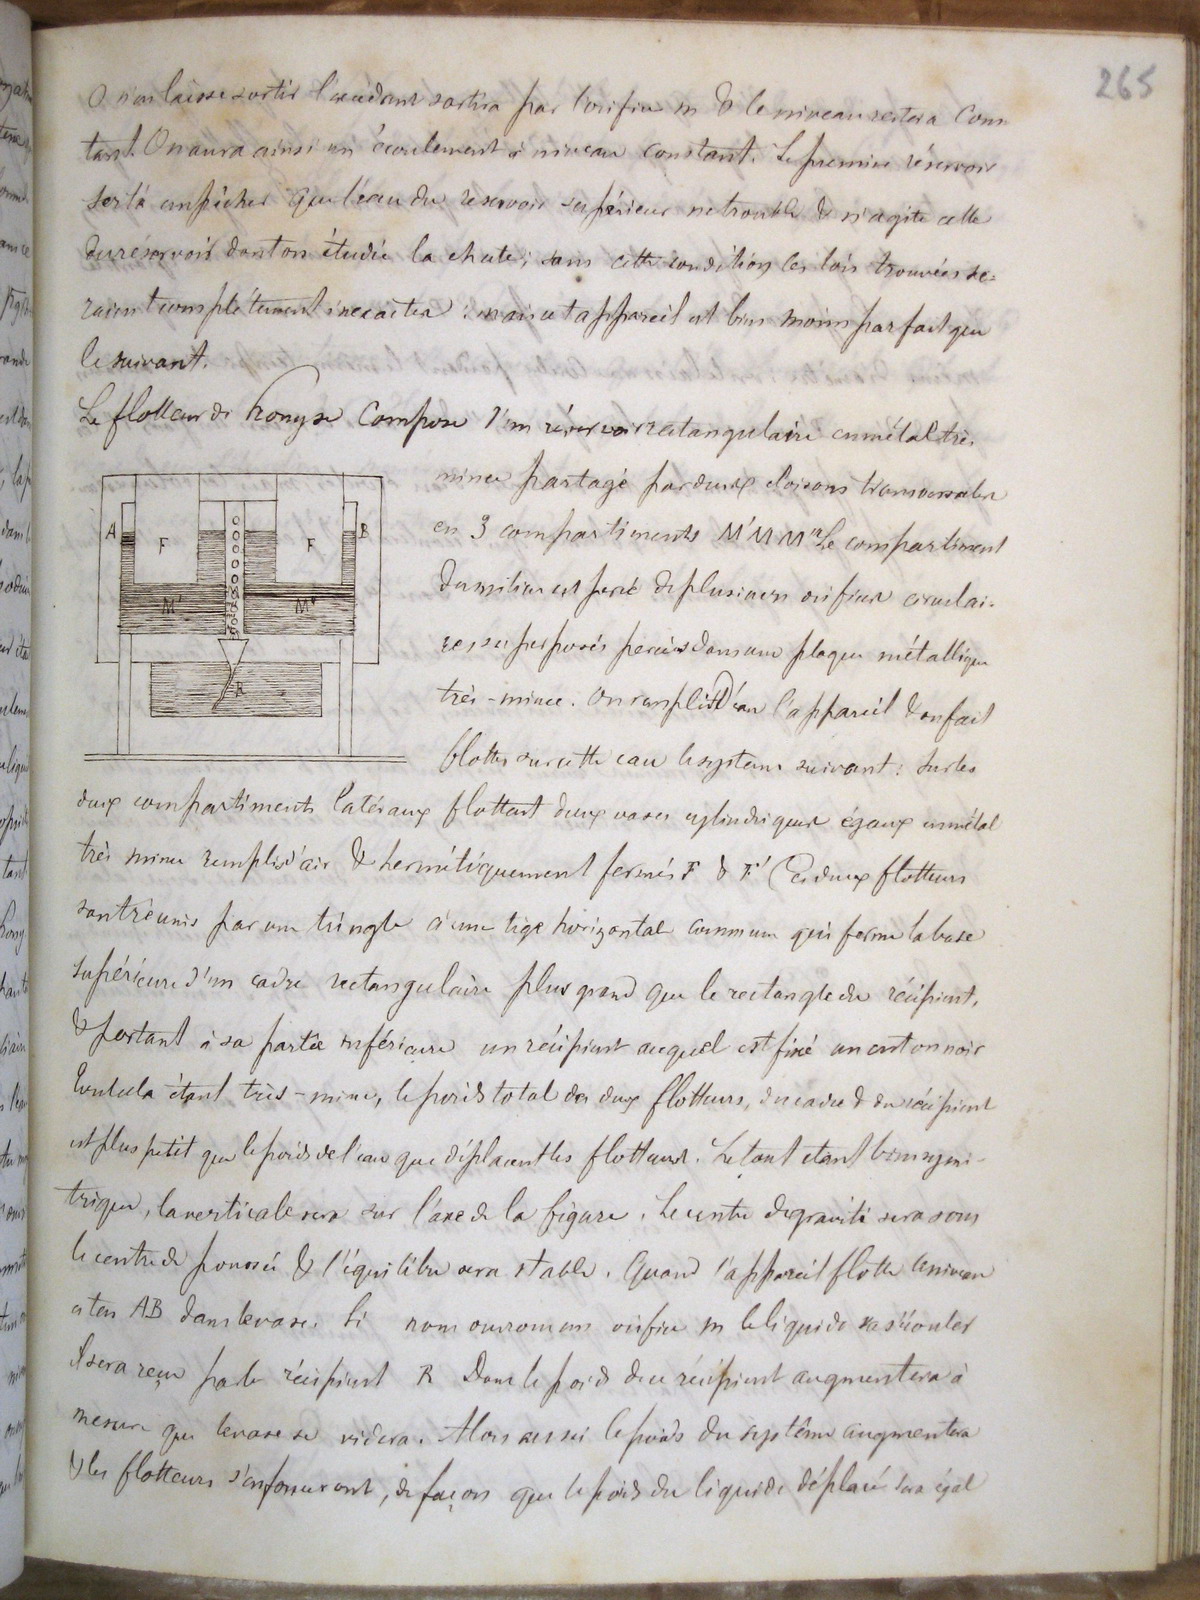 265
O n'en laisse sortir l'excédant sortira par l'orifice m & le niveau restera Cons
tant. On aura ainsi un écoulement à niveau constant. Le premier réservoir
sert à empêcher que l'eau du reservoir supérieur ne trouble & n'agite celle
du reservoir dont on étudie la chute; sans cette condition les lois trouvées se=
raient complètement inexactes : mais cet appareil est bien moins parfait que
le suivant.
Le flotteur de Prony se Compose d'un réservoir rectangulaire en métal très
mince partagé par deux cloisons transversales
en 3 compartiments M' M M" Le compartiment
du milieu est percé de plusieurs orifices circulai-
res superposés percés dans une plaque métallique
très-mince. On remplit d'eau l'appareil & on fait
flotter sur cette eau le système suivant : Sur les
A F F B
M' M"
R
deux compartiments latéraux flottent deux vases cylindriques égaux en métal
très mince remplis d'air & hermétiquement fermés F & F' Ces deux flotteurs
sont réunis par une tringle à une tige horizontale commune qui forme la base
supérieure d'un cadre rectangulaire plus grand que le rectangle du récipient,
& portant à sa partie inférieure un récipient auquel est fixé un entonnoir
Tout cela étant très-mince, le poids total des deux flotteurs, du cadre & du récipient
est plus petit que le poids de l'eau que déplacent les flotteurs. Le tout étant bien symé-
trique, la verticale sera sur l'axe de la figure. Le centre de gravité sera sous
le centre de poussée & l'équilibre sera stable. Quand l'appareil flotte le niveau
est en AB dans le vase. Si nous ouvrons un orifice m le liquide va s'écouler
Il sera reçu par le récipient R Donc le poids du récipient augmentera à
mesure que le vase se videra. Alors aussi le poids du système augmentera
& les flotteurs s'enfonceront, de façon que le poids du liquide déplacé sera égal